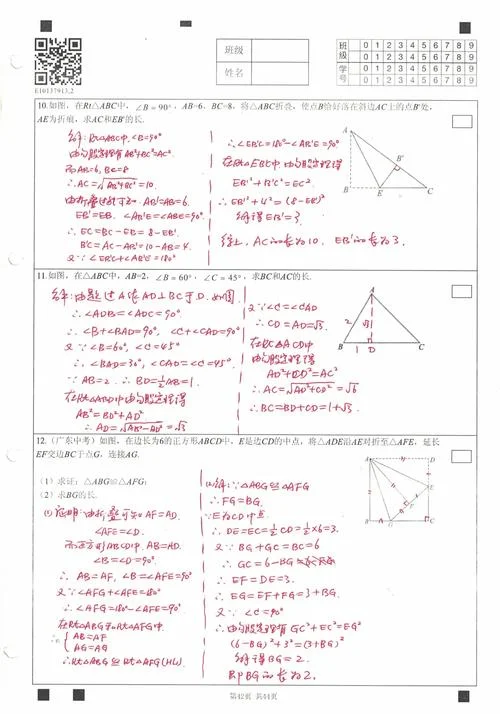 E10137913_2
班级
姓名
班级 0 1 2 3 4 5 6 7 8 9
0 1 2 3 4 5 6 7 8 9
学号 0 1 2 3 4 5 6 7 8 9
0 1 2 3 4 5 6 7 8 9
10.如图,在Rt△ABC中,∠B=90°,AB=6,BC=8,将△ABC折叠,使点B恰好落在斜边AC上的点B'处,
AE为折痕,求AC和EB'的长.
解:Rt△ABC中,∠B=90°
由勾股定理有AB²+BC²=AC²
而AB=6,BC=8
∴AC=√AB²+BC²=10.
由折叠过程可知. AB'=AB=6.
EB'=EB. ∠AB'E=∠ABE=90°
∴EC=BC-EB=8-EB'.
B'C=AC-AB'=10-AB=4.
又∵∠EB'C+∠AB'E=180°
∴∠EB'C=180°-∠AB'E=90°
在Rt△EBC中由勾股定理得
EB'²+B'C²=EC²
∴EB'²+4²=(8-EB')²
解得EB'=3.
综上,AC的长为10,EB'的长为3.
A
B'
B E C
11.如图,在△ABC中,AB=2,∠B=60°,∠C=45°,求BC和AC的长.
解:由题过A作AD⊥BC于D.如图
∴∠ADB=∠ADC=90°
∴∠B+∠BAD=90°,∠C+∠CAD=90°
又∵∠B=60°,∠C=45°
∴∠BAD=30°,∠CAD=∠C=45°
∵AB=2 ∴BD=½AB=1.
在Rt△ABD中由勾股定理得
AB²=BD²+AD²
∴AD=√AB²-BD²=√3
又∵∠C=∠CAD
∴CD=AD=√3.
在Rt△ACD中
由勾股定理得
AD²+CD²=AC²
∴AC=√AD²+CD²=√6
∴BC=BD+CD=1+√3.
A
2 √3
B 1 D C
12.(广东中考)如图,在边长为6的正方形ABCD中,E是边CD的中点,将△ADE沿AE对折至△AFE,延长
EF交边BC于点G,连接AG.
(1)求证:△ABG≌△AFG;
(2)求BG的长.
(1)证明:由折叠可知AF=AD.
∠AFE=∠D.
而正方形ABCD中.AB=AD.
∠B=∠D=90°.
∴AB=AF,∠B=∠AFE=90°
又∵∠AFG+∠AFE=180°
∴∠AFG=180°-∠AFE=90°
在Rt△ABG和Rt△AFG中.
AB=AF
AG=AG
∴Rt△ABG≌Rt△AFG(HL).
解:∵△ABG≌△AFG
∴FG=BG.
∵E为CD中点
∴DE=EC=½CD=½×6=3.
又∵BG+GC=BC=6
∴GC=6-BG
∴EF=DE=3.
∴EG=EF+FG=3+BG.
又∵∠C=90°
∴由勾股定理有GC²+EC²=EG²
(6-BG)²+3²=(3+BG)²
解得BG=2.
即BG的长为2.
A D
E
F
B G C
第42页 共44页